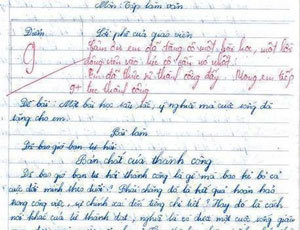 Môn: Tập làm văn
Điểm: Lời phê của giáo viên
9
Cảm ơn em đã tặng cô một bài học, một lời
động viên vào lúc cô cần nó nhất!
Em đã thực sự thành công đấy. Mong em tiếp
9+ tục thành công
Đề bài: Một bài học sâu sắc, ý nghĩa mà cuộc sống đã
tặng cho em.
Bài làm
Đã bao giờ bạn tự hỏi
Bản chất của thành công
Đã bao giờ bạn tự hỏi thành công là gì mà bao kẻ bỏ cả
cuộc đời mình theo đuổi? Phải chăng đó là kết quả hoàn hảo
trong công việc, sự chính xác đến từng chi tiết? Hay đó là cách
nói khác của từ thành đạt, nghĩa là có được một cuộc sống giàu